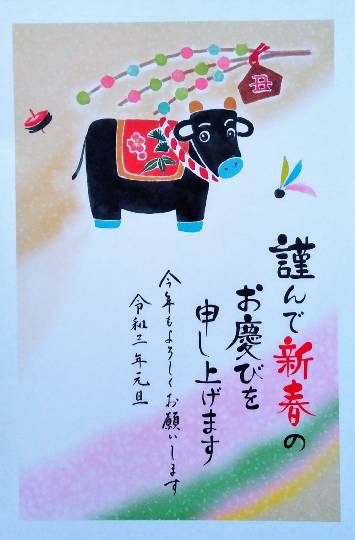 丑
謹んで新春の
お慶びを
申し上げます
今年もよろしくお願いします
令和三年元旦